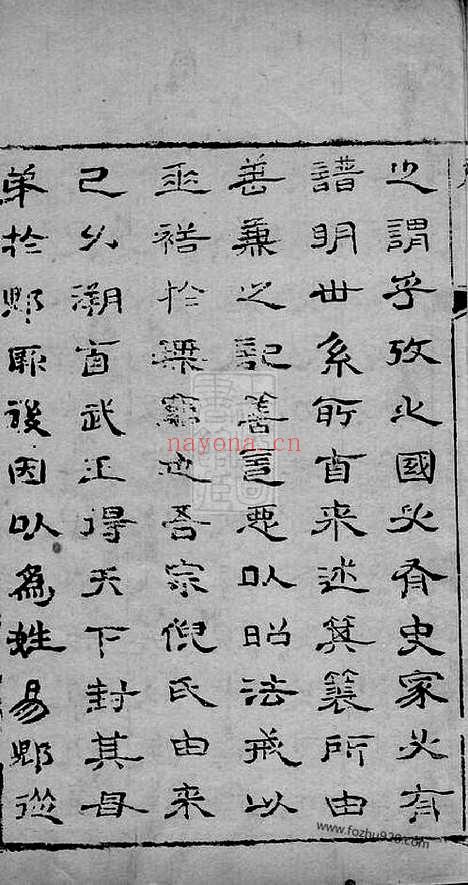 之謂乎攷之國必有史家必有
譜明世系所自來述箕裘所由
善兼之記善言惡以昭法戒以
垂裕於無窮也吾宗倪氏由來
已久溯自武王得天下封其母
弟於郳厥後因以為姓易郳從
nayona.cn
www.fozhu920.com